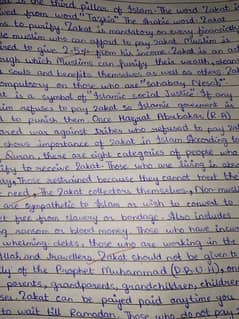 is the third pillar of Islam. The word "Zakat is
ved from word "Tazkia" The Arabic word. Zakat
ns to purify. Zakat is mandatory on every financially
le muslim who can afford to pay zakat. Muslim are
ired to give 2.5% from his income. Zakat is an act
gh which Muslims can purify their wealth, cleans
souls and benefits themselves as well as others. Zak
ompulsory on those who are "Sahabay Nesab"
at is a symbol of "Islamic Social Justice". If any
lim refuses to pay zakat so Islamic goverment is
to punish them. Once Hazrat Abubakar (R.A)
ared war against tribes who refused to pay zak
shows importance of zakat in Islam. According to
Quran, there are eight categories of people who
fy to receive zakat. Those who are living in abso
ty, Those restrained because they cannot meet the
need, The zakat collectors themselves, Non-musli
are sympathetic to Islam or wish to convert to
free from slavery or bondage. Also includes
ng ransom or blood money. Those who have incu
whelming debts, those who are working in the
Allah and travellers. Zakat should not be given to
ly of the Prophet Muhammad (P.B.U.H), one
parents, grandparents, grandchildren, children
ses. Zakat can be payed paid anytime you
to wait till Ramadan. Those who do not pay